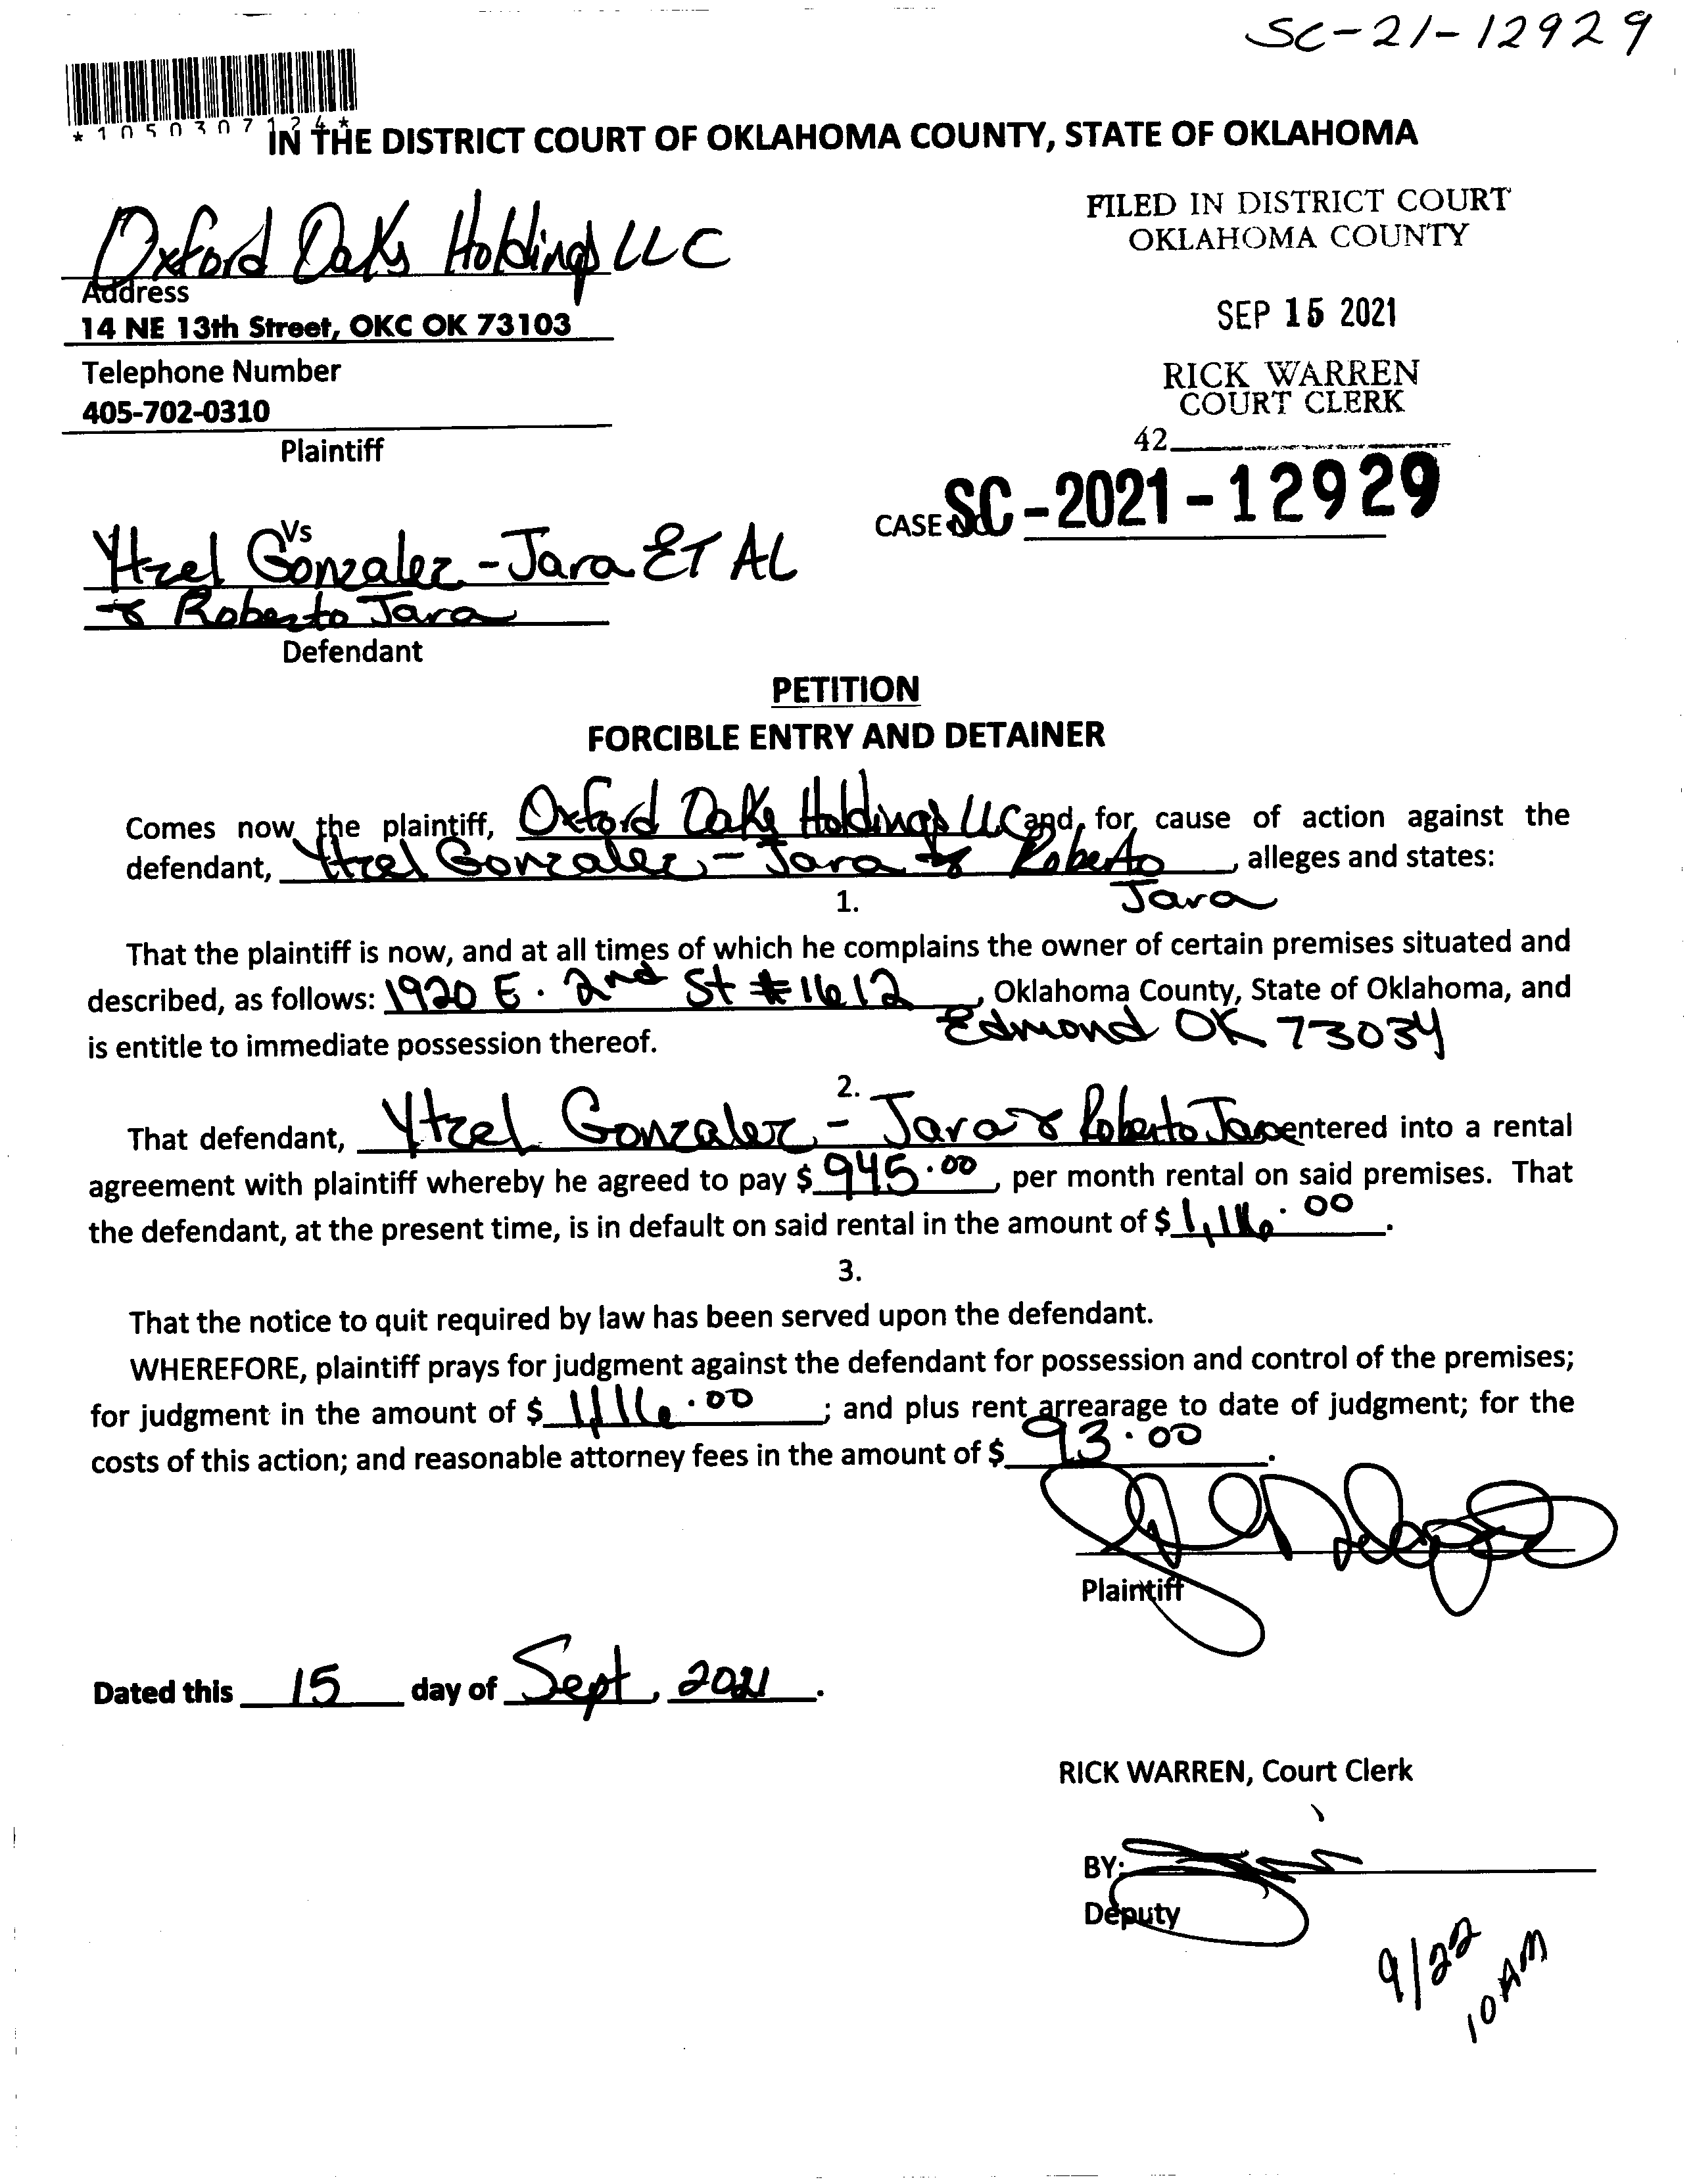 SC-21-12929
*1050307124*
IN THE DISTRICT COURT OF OKLAHOMA COUNTY, STATE OF OKLAHOMA
Oxford Oaks Holdings LLC
Address
14 NE 13th Street, OKC OK 73103
Telephone Number
405-702-0310
Plaintiff
FILED IN DISTRICT COURT
OKLAHOMA COUNTY
SEP 15 2021
RICK WARREN
COURT CLERK
42
CASE NO SC-2021-12929
Vs
Ytzel Gonzalez-Jara ET AL
& Roberto Jara
Defendant
PETITION
FORCIBLE ENTRY AND DETAINER
Comes now the plaintiff, Oxford Oaks Holdings LLC and, for cause of action against the
defendant, Ytzel Gonzalez-Jara & Roberto Jara, alleges and states:
1.
That the plaintiff is now, and at all times of which he complains the owner of certain premises situated and
described, as follows: 1920 E. 2nd St #1612, Oklahoma County, State of Oklahoma, and
Edmond OK 73034
is entitle to immediate possession thereof.
2.
That defendant, Ytzel Gonzalez-Jara & Roberto Jara entered into a rental
agreement with plaintiff whereby he agreed to pay $ 945.00, per month rental on said premises. That
the defendant, at the present time, is in default on said rental in the amount of $ 1,116.00.
3.
That the notice to quit required by law has been served upon the defendant.
WHEREFORE, plaintiff prays for judgment against the defendant for possession and control of the premises;
for judgment in the amount of $ 1,116.00; and plus rent arrearage to date of judgment; for the
costs of this action; and reasonable attorney fees in the amount of $ 93.00.
Plaintiff
Dated this 15 day of Sept, 2021.
RICK WARREN, Court Clerk
BY:
Deputy
9/22
10 AM